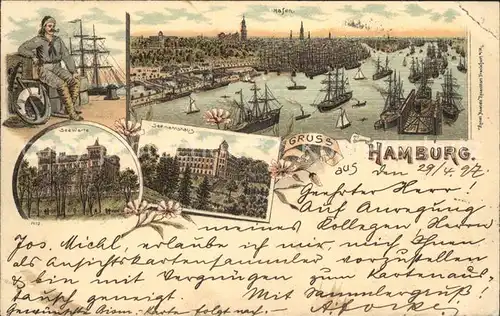 Hafen
Seewarte
Seemannshaus
GRUSS
aus
HAMBURG.
den 29/4. 97.
Geehrter Herr!
Auf Anregung
meines Kollegen Herrn
Jos. Michl, erlaube ich mir, mich Ihnen
als Ansichtskartensammler vorzustellen
& bin mit Vergnügen zum Kartenaus,
tausch geneigt. Mit Sammlergruß!
Gewünschte Karte folgt nach.